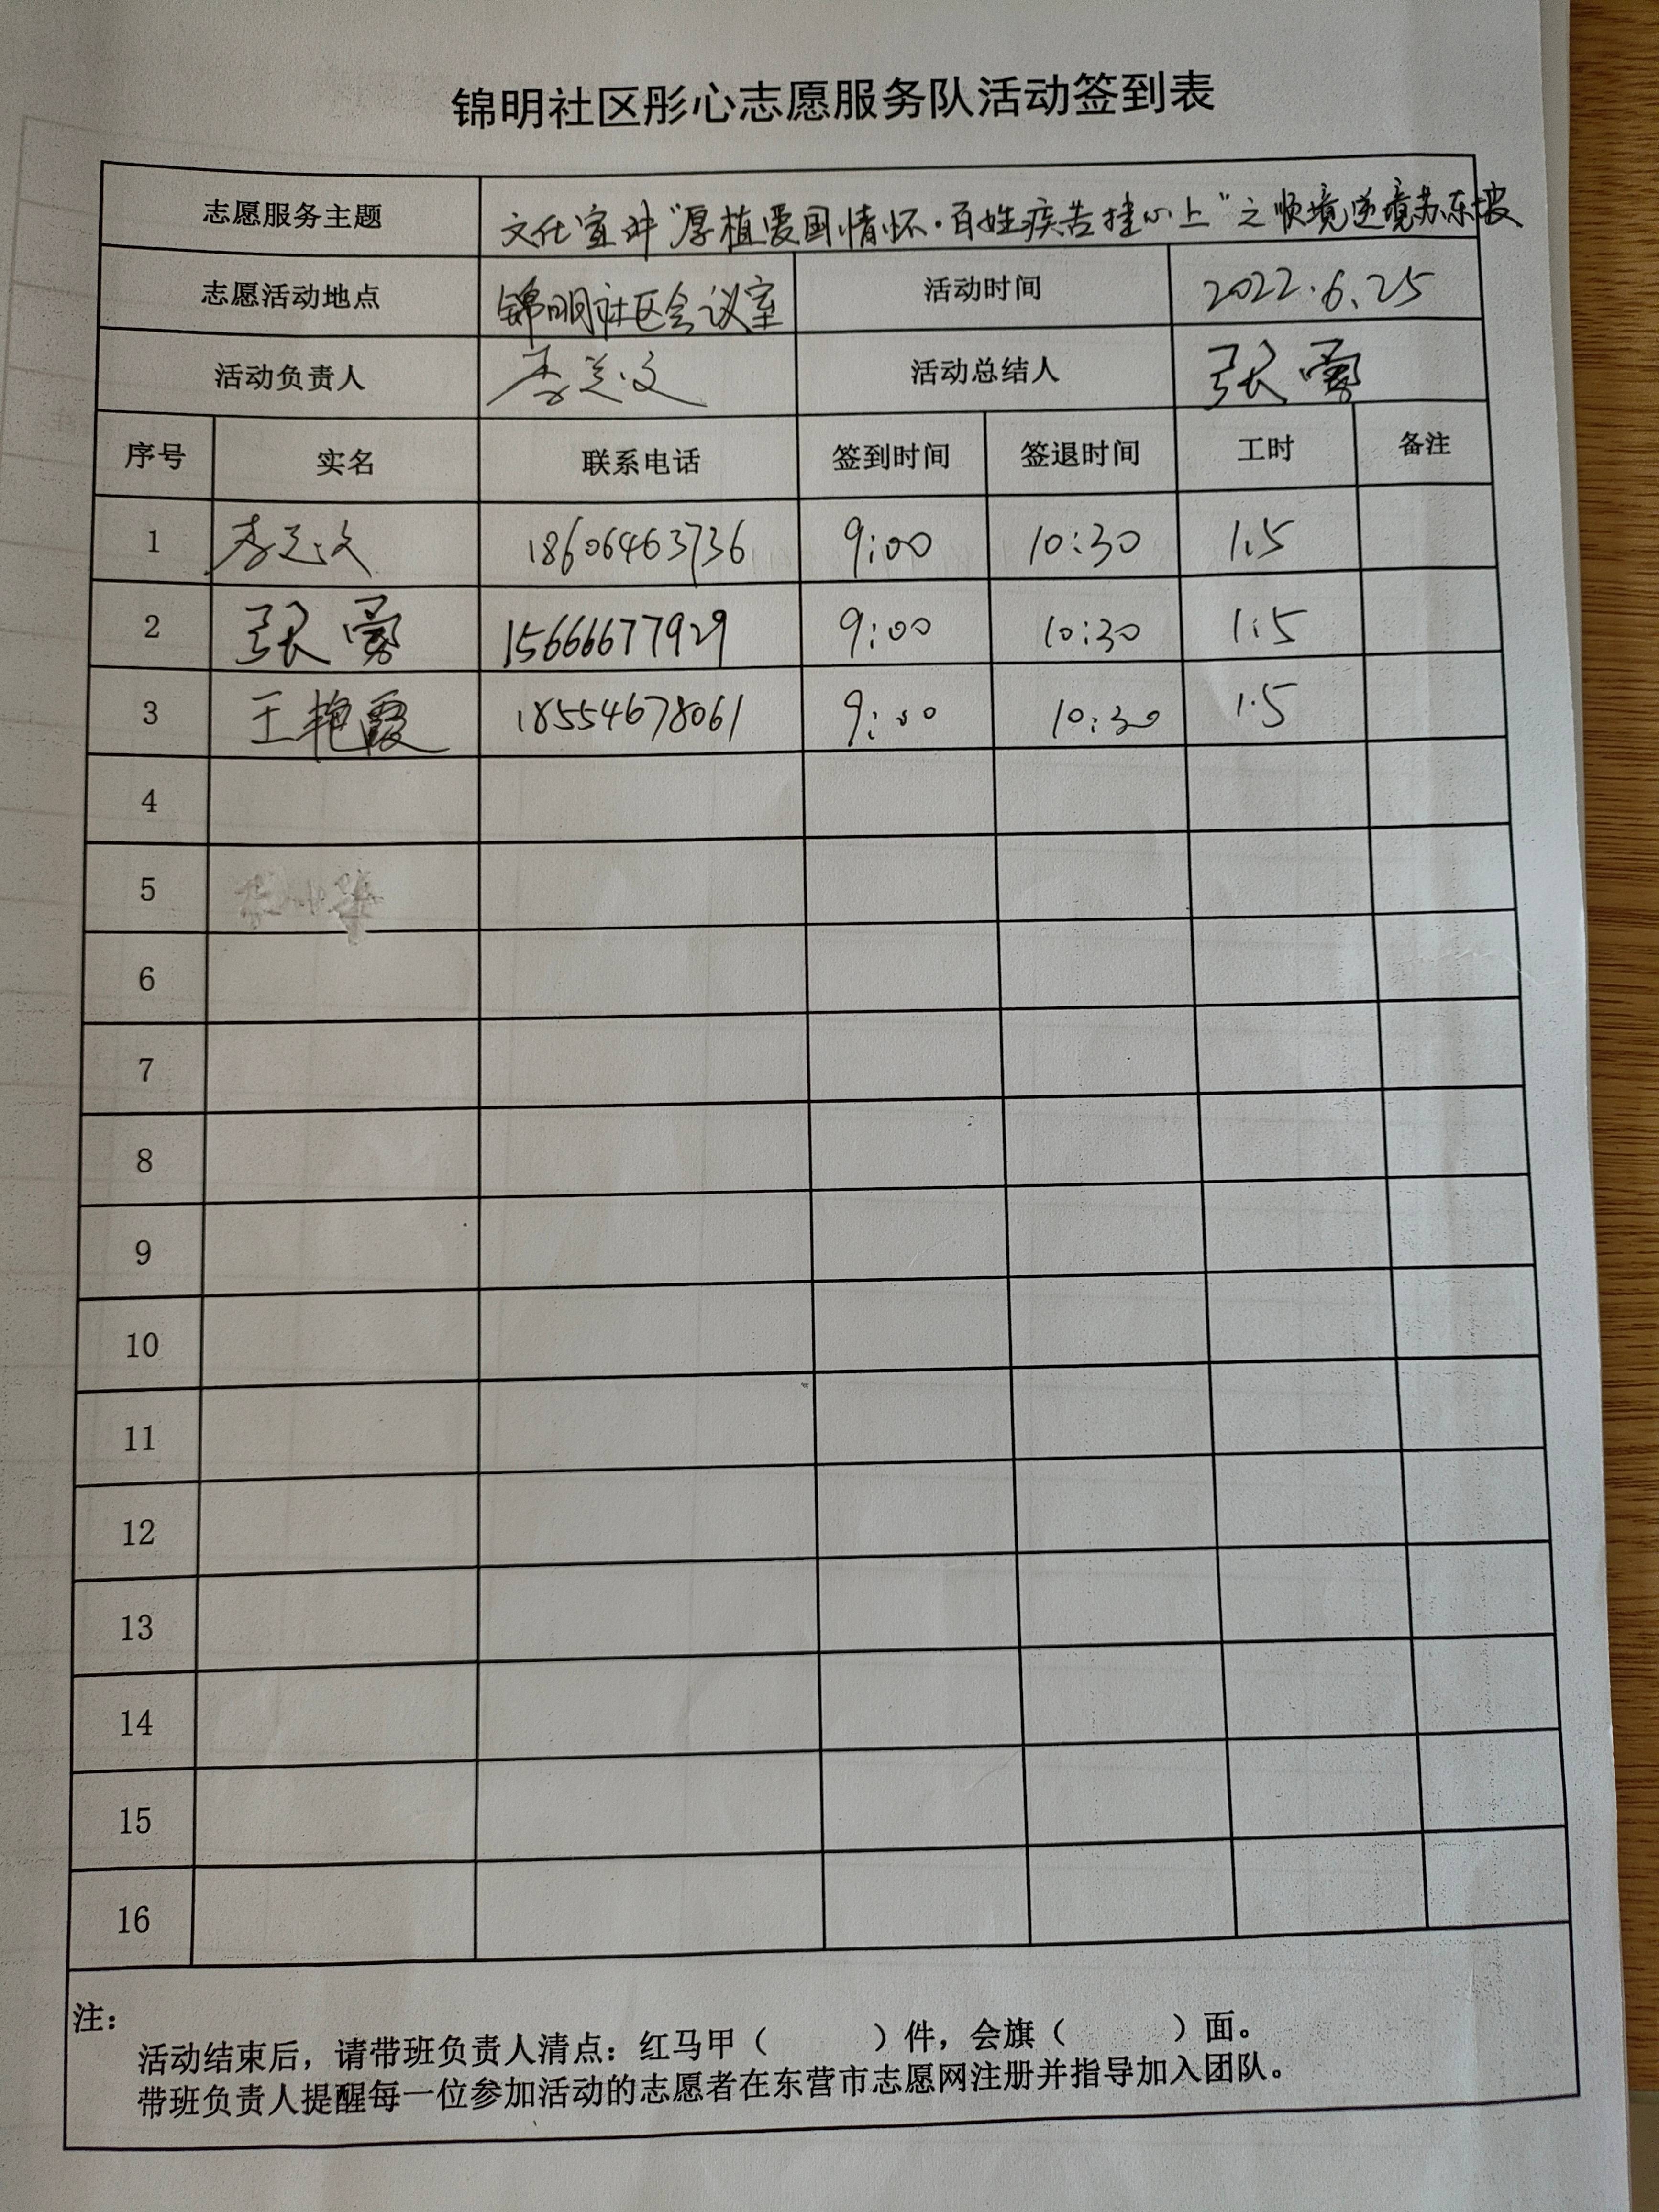 锦明社区彤心志愿服务队活动签到表
志愿服务主题 文化宣讲“厚植爱国情怀·百姓疾苦挂心上”之顺境逆境苏东坡
志愿活动地点 锦明社区会议室 活动时间 2022.6.25
活动负责人 李 文 活动总结人 张
序号 实名 联系电话 签到时间 签退时间 工时 备注
1 李 文 18606463736 9:00 10:30 1.5
2 张 15666677929 9:00 10:30 1.5
3 王艳霞 18554678061 9:00 10:30 1.5
4
5
6
7
8
9
10
11
12
13
14
15
16
注：
活动结束后，请带班负责人清点：红马甲（ ）件，会旗（ ）面。
带班负责人提醒每一位参加活动的志愿者在东营市志愿网注册并指导加入团队。